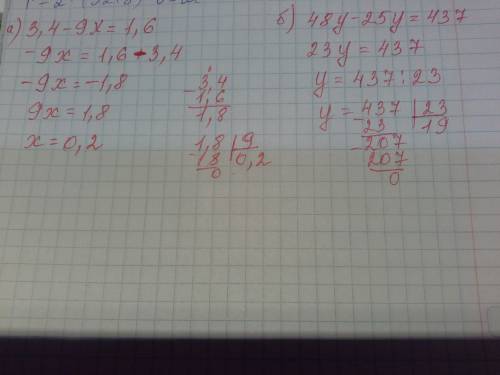 а) 3,4-9x=1,6
-9x=1,6-3,4
-9x=-1,8
9x=1,8
x=0,2
3,4
-1,6
1,8
1,8 | 9
18 | 0,2
0
б) 48y-25y=437
23y=437
y=437:23
y=437 | 23
-23 | 19
-207
207
0